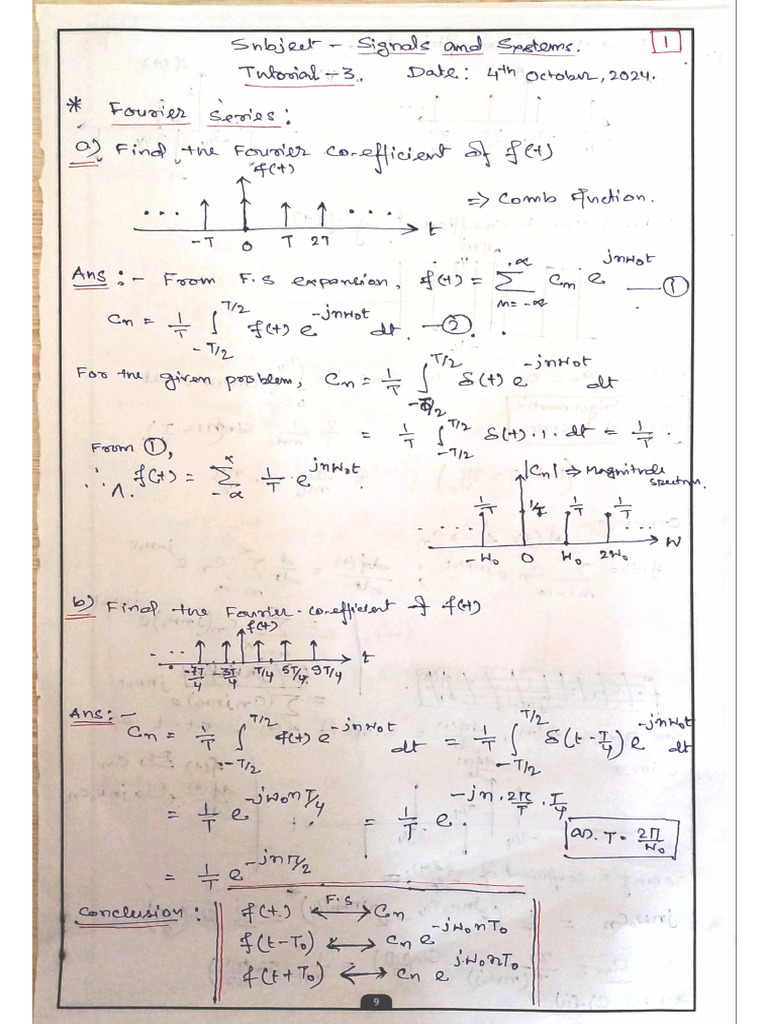 Subject - Signals and Systems. 1
Tutorial - 3. Date: 4th October, 2024.
* Fourier Series:
a) Find the Fourier co-efficient of f(t)
f(t)
⇒ Comb Function.
... ...
-T 0 T 2T t
Ans:- From F.S expansion, f(t) = ∑_{n=-∝}^{∝} Cn e^{jnw₀t} — ①
Cn = 1/T ∫_{-T/2}^{T/2} f(t) e^{-jnw₀t} dt. — ②.
For the given problem, Cn = 1/T ∫_{-T/2}^{T/2} δ(t) e^{-jnw₀t} dt
= 1/T ∫_{-T/2}^{T/2} δ(t).1.dt = 1/T.
From ①,
∴ f(t) = ∑_{-∝}^{∝} 1/T . e^{jnw₀t}
|Cn| ⇒ Magnitude
spectrum.
1/T 1/T 1/T 1/T
... ...
-w₀ 0 w₀ 2w₀ w
b) Find the Fourier co-efficient of f(t)
f(t)
... t
-7T/4 -3T/4 T/4 5T/4 9T/4
Ans:-
Cn = 1/T ∫_{-T/2}^{T/2} f(t) e^{-jnw₀t} dt = 1/T ∫_{-T/2}^{T/2} δ(t-T/4) e^{-jnw₀t} dt
= 1/T e^{-jw₀nT/4} = 1/T . e^{-jn.2π/T.T/4}
as. T = 2π/w₀
= 1/T e^{-jnπ/2}
Conclusion: f(t) ⟷ Cn
F.S
f(t-T₀) ⟷ Cn e^{-jw₀nT₀}
f(t+T₀) ⟷ Cn e^{jw₀nT₀}
9